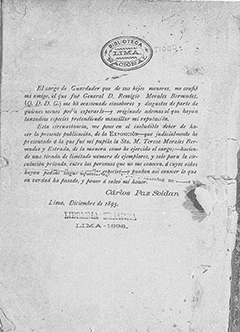 BIBLIOTECA
LIMA
NACIONAL
El cargo de Guardador que de sus hijos menores, me confió
mi amigo, el que fué General D. Remigio Morales Bermudez,
(Q. D. D. G.) me há ocasionado sinsabores y disgustos de parte de
quienes menos podía esperarlo—y originado además el que hayan
lanzádose especies pretendiendo mancillar mi reputación.
Esta circunstancia, me pone en el ineludible deber de hacer
la presente publicación, de la EXPOSICIÓN—que judicialmente he
presentado á la que fué mi pupila la Sta. M. Teresa Morales Bermudez
y Estrada, de la manera como he ejercido el cargo;—haciendo
una tirada de limitado número de ejemplares, y solo para la circulación
privada, entre las personas que no me conocen, á cuyos oidos
hayan podido llegar especies—y puedan así conocer lo que
en verdad ha pasado, y poner á salvo mi honor.
Cárlos Paz Soldan
Lima, Diciembre de 1895.
LIMA—1896.